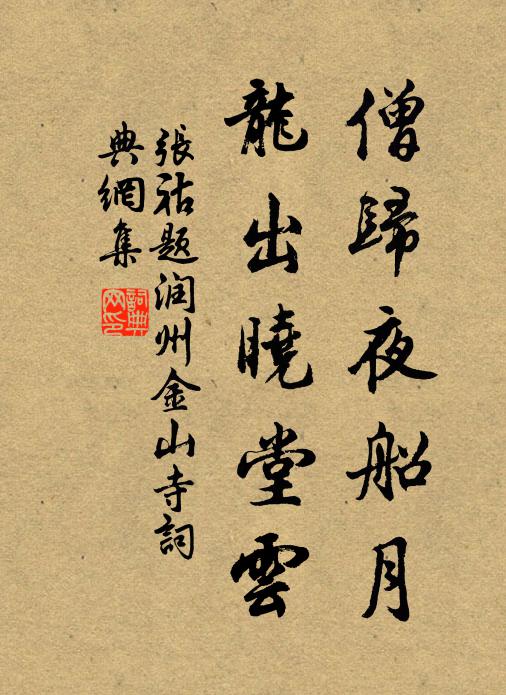 僧歸夜船月
龍出曉堂雲
張祜題润州金山寺詞
典網集
詞典
网印